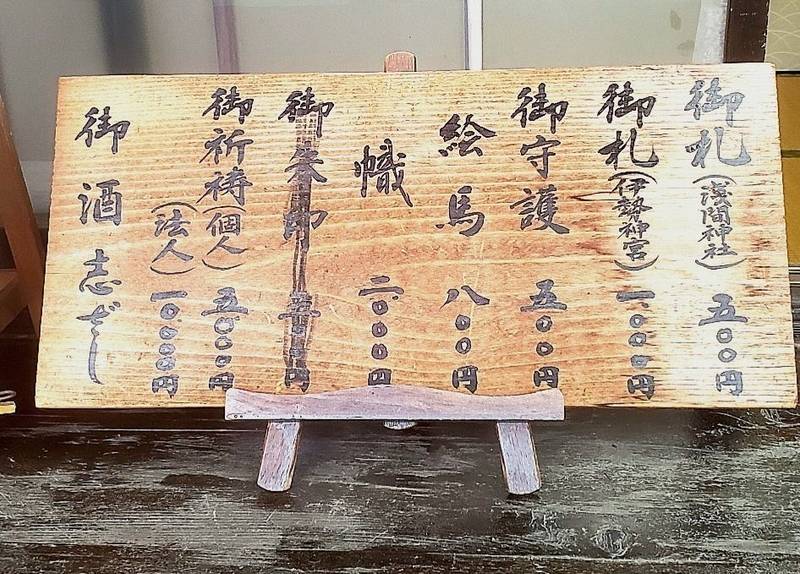 御札(浅間神社)五〇〇円
御札(伊勢神宮)一、〇〇〇円
御守護 五〇〇円
絵馬 八〇〇円
幟 二、〇〇〇円
御朱印 五〇〇円
御祈祷(個人)五、〇〇〇円
(法人)一〇、〇〇〇円
御酒 志ざし